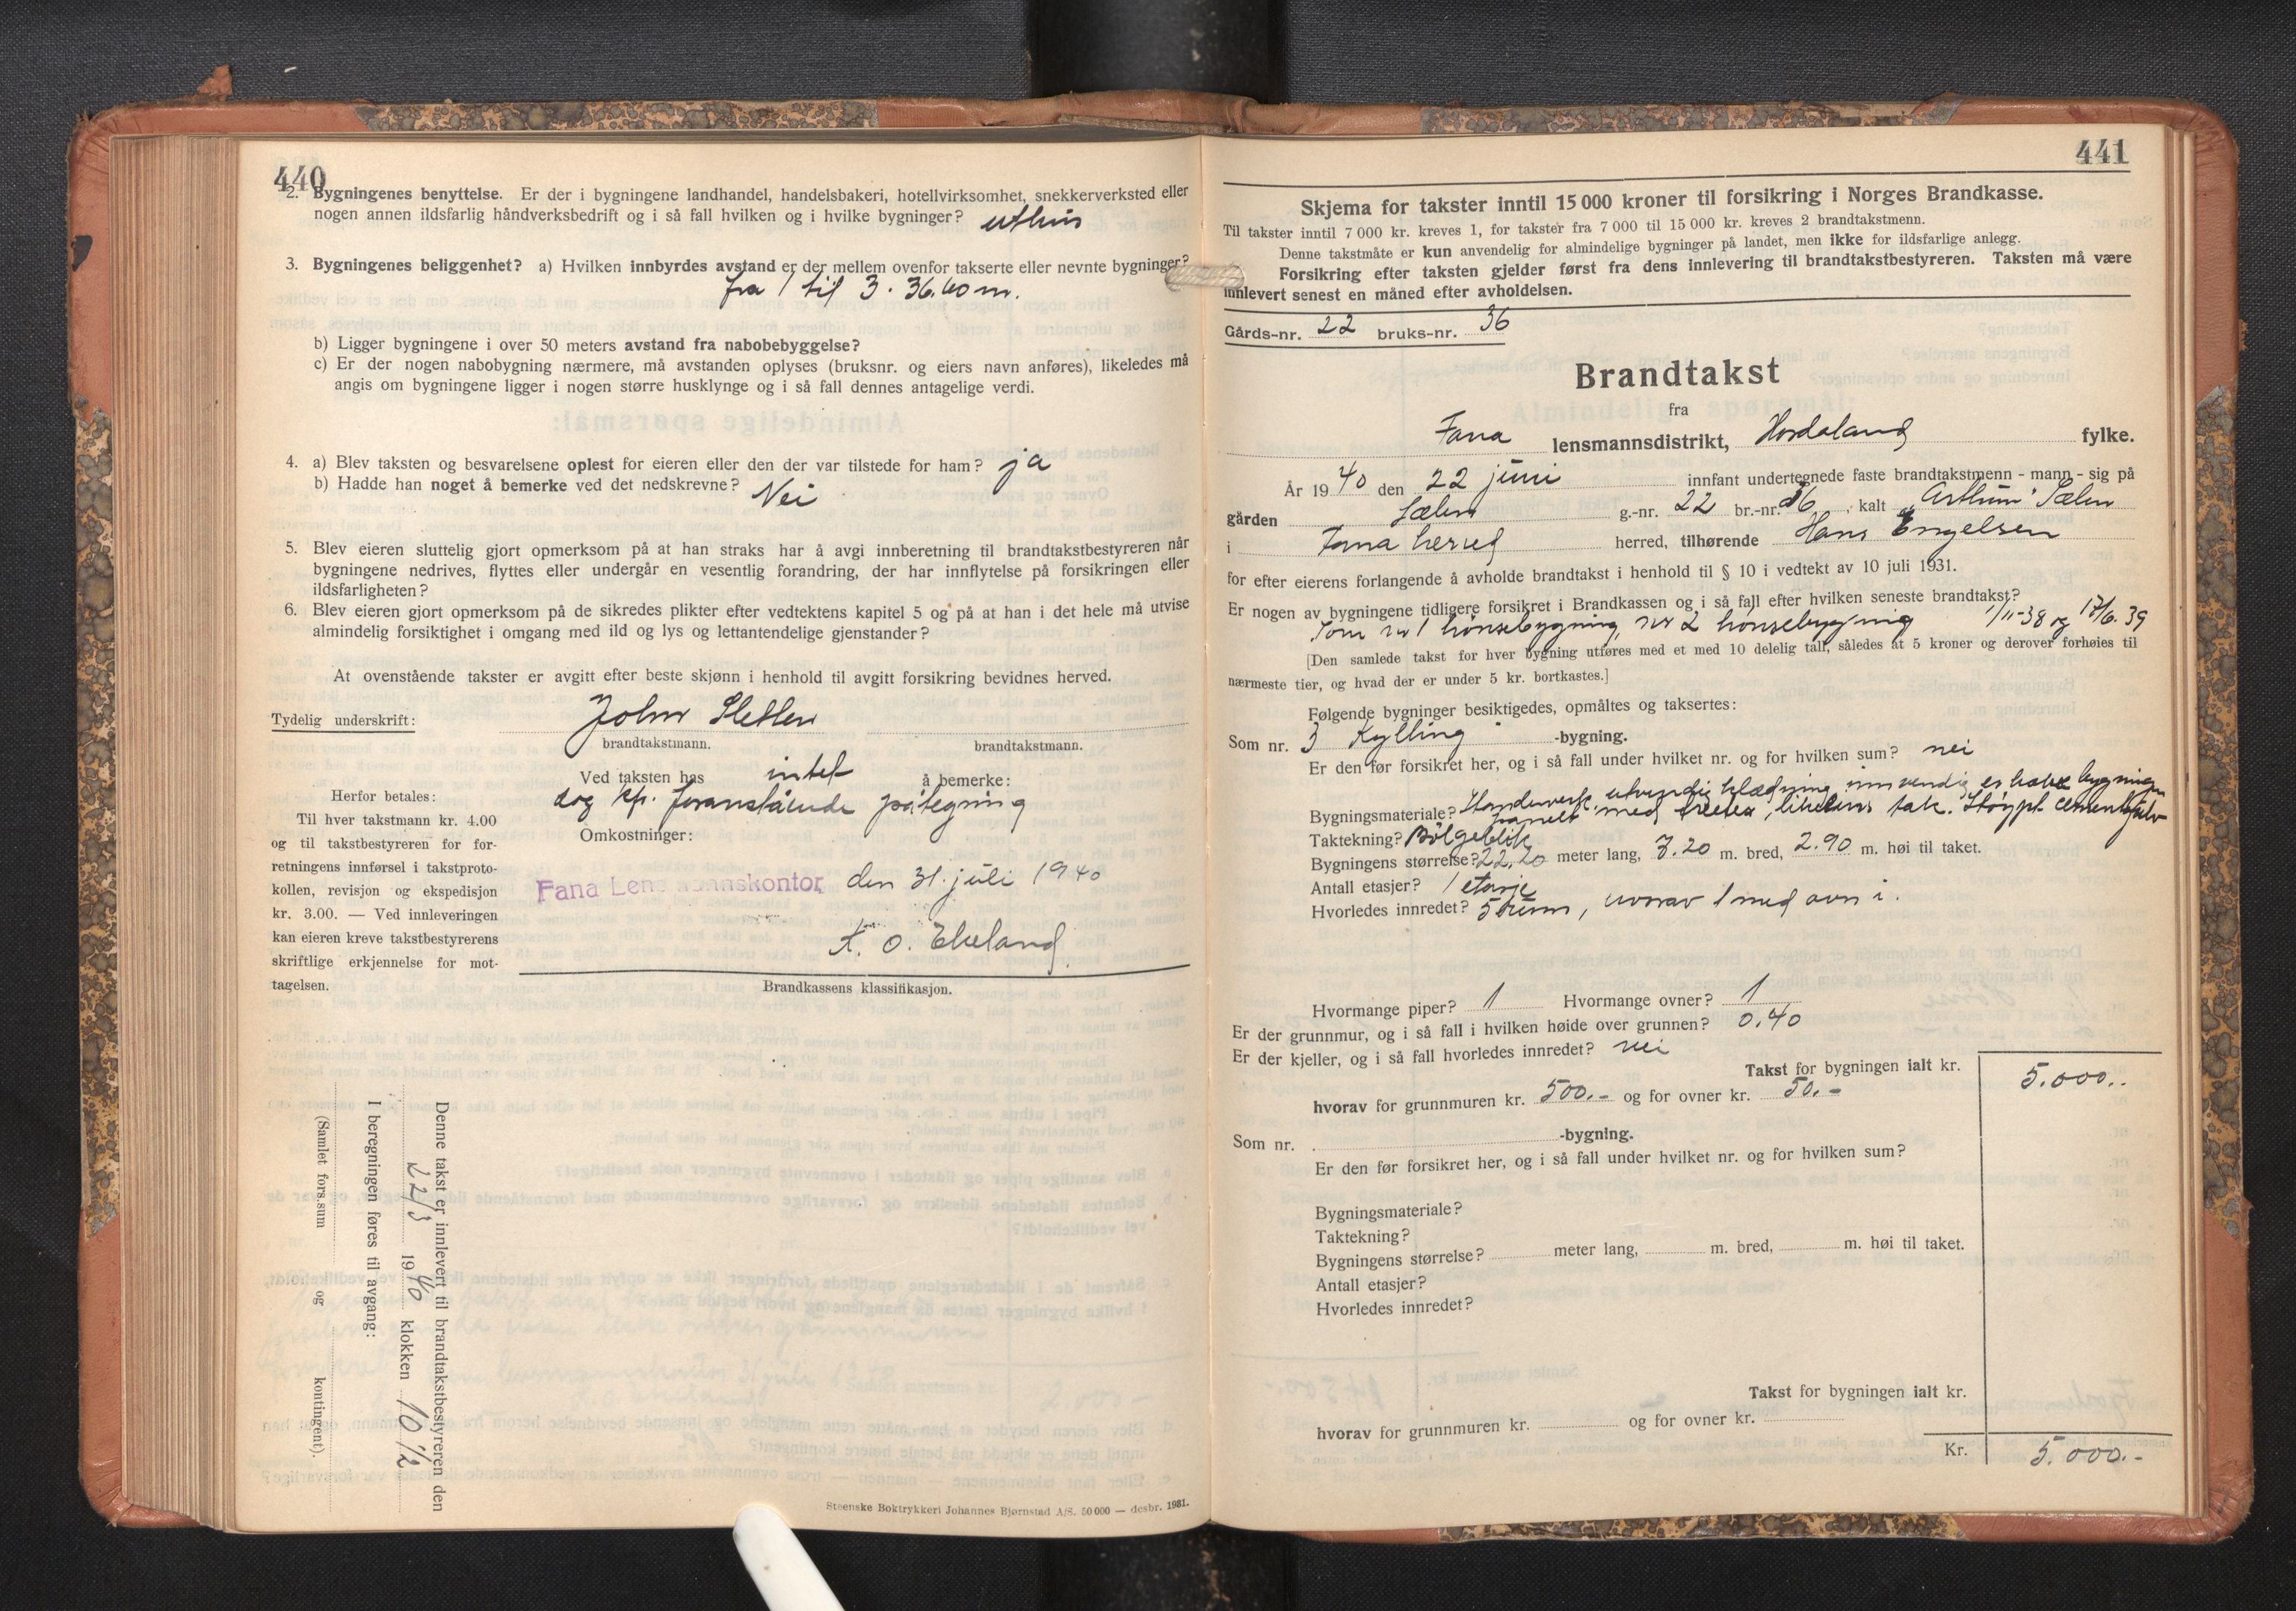 440
2. Bygningenes benyttelse. Er der i bygningene landhandel, handelsbakeri, hotellvirksomhet, snekkerverksted eller
nogen annen ildsfarlig håndverksbedrift og i så fall hvilken og i hvilke bygninger? uthus
3. Bygningenes beliggenhet? a) Hvilken innbyrdes avstand er der mellem ovenfor takserte eller nevnte bygninger?
fra 1 til 3. 36.40 m.
b) Ligger bygningene i over 50 meters avstand fra nabobebyggelse?
c) Er der nogen nabobygning nærmere, må avstanden oplyses (bruksnr. og eiers navn anføres), likeledes må
angis om bygningene ligger i nogen større husklynge og i så fall dennes antagelige verdi.
4. a) Blev taksten og besvarelsene oplest for eieren eller den der var tilstede for ham? ja
b) Hadde han noget å bemerke ved det nedskrevne? Nei
5. Blev eieren sluttelig gjort opmerksom på at han straks har å avgi innberetning til brandtakstbestyreren når
bygningene nedrives, flyttes eller undergår en vesentlig forandring, der har innflytelse på forsikringen eller
ildsfarligheten?
6. Blev eieren gjort opmerksom på de sikredes plikter efter vedtektens kapitel 5 og på at han i det hele må utvise
almindelig forsiktighet i omgang med ild og lys og lettantendelige gjenstander?
At ovenstående takster er avgitt efter beste skjønn i henhold til avgitt forsikring bevidnes herved.
Tydelig underskrift: John Sletten
brandtakstmann. brandtakstmann.
Ved taksten has intet å bemerke:
dog kfr. foranstående påtegning
Omkostninger:
Herfor betales:
Til hver takstmann kr. 4.00
og til takstbestyreren for for-
retningens innførsel i takstproto-
kollen, revisjon og ekspedisjon
kr. 3.00. — Ved innleveringen
kan eieren kreve takstbestyrerens
skriftlige erkjennelse for mot-
tagelsen.
Fana Lensmannskontor den 31. juli 1940
O. Ekeland
Brandkassens klassifikasjon.
Denne takst er innlevert til brandtakstbestyreren den
22/3 1940 klokken 10 1/2
I beregningen føres til avgang:
(Samlet fors.sum og kontingent).
Steenske Boktrykkeri Johannes Bjørnstad A/S. 50 000 — desbr. 1931.
441
Skjema for takster inntil 15 000 kroner til forsikring i Norges Brandkasse.
Til takster inntil 7 000 kr. kreves 1, for takster fra 7 000 til 15 000 kr. kreves 2 brandtakstmenn.
Denne takstmåte er kun anvendelig for almindelige bygninger på landet, men ikke for ildsfarlige anlegg.
Forsikring efter taksten gjelder først fra dens innlevering til brandtakstbestyreren. Taksten må være
innlevert senest en måned efter avholdelsen.
Gårds-nr. 22 bruks-nr. 36
Brandtakst
fra
Fana lensmannsdistrikt, Hordaland fylke.
År 1940 den 22 juni innfant undertegnede faste brandtakstmenn - mann - sig på
gården Sælen g.-nr. 22 br.-nr. 36, kalt Sælen
i Fana herred herred, tilhørende Hans Engelsen
for efter eierens forlangende å avholde brandtakst i henhold til § 10 i vedtekt av 10 juli 1931.
Er nogen av bygningene tidligere forsikret i Brandkassen og i så fall efter hvilken seneste brandtakst?
Som nr 1 hønsebygning, nr 2 hønsebygning 1/11-38 og 17/6.39
[Den samlede takst for hver bygning utføres med et med 10 delelig tall, således at 5 kroner og derover forhøies til
nærmeste tier, og hvad der er under 5 kr. bortkastes.]
Følgende bygninger besiktigedes, opmåltes og taksertes:
Som nr. 3 Kylling -bygning.
Er den før forsikret her, og i så fall under hvilket nr. og for hvilken sum? nei
Bygningsmateriale? utvendig klædning, innvendig er halve bygningen
panelt med treetex, likeledes tak. Støypt cementgulv
Taktekning? Bølgeblik
Bygningens størrelse? 22.20 meter lang, 7.20 m. bred, 2.90 m. høi til taket.
Antall etasjer? 1 etasje
Hvorledes innredet? 5 rum, hvorav 1 med ovn i.
Hvormange piper? 1 Hvormange ovner? 1
Er der grunnmur, og i så fall i hvilken høide over grunnen? 0.40
Er der kjeller, og i så fall hvorledes innredet? nei
Takst for bygningen ialt kr. 5.000..
hvorav for grunnmuren kr. 500.- og for ovner kr. 50.-
Som nr. -bygning.
Er den før forsikret her, og i så fall under hvilket nr. og for hvilken sum?
Bygningsmateriale?
Taktekning?
Bygningens størrelse? meter lang, m. bred, m. høi til taket.
Antall etasjer?
Hvorledes innredet?
Takst for bygningen ialt kr.
hvorav for grunnmuren kr. og for ovner kr.
Kr. 5.000.-